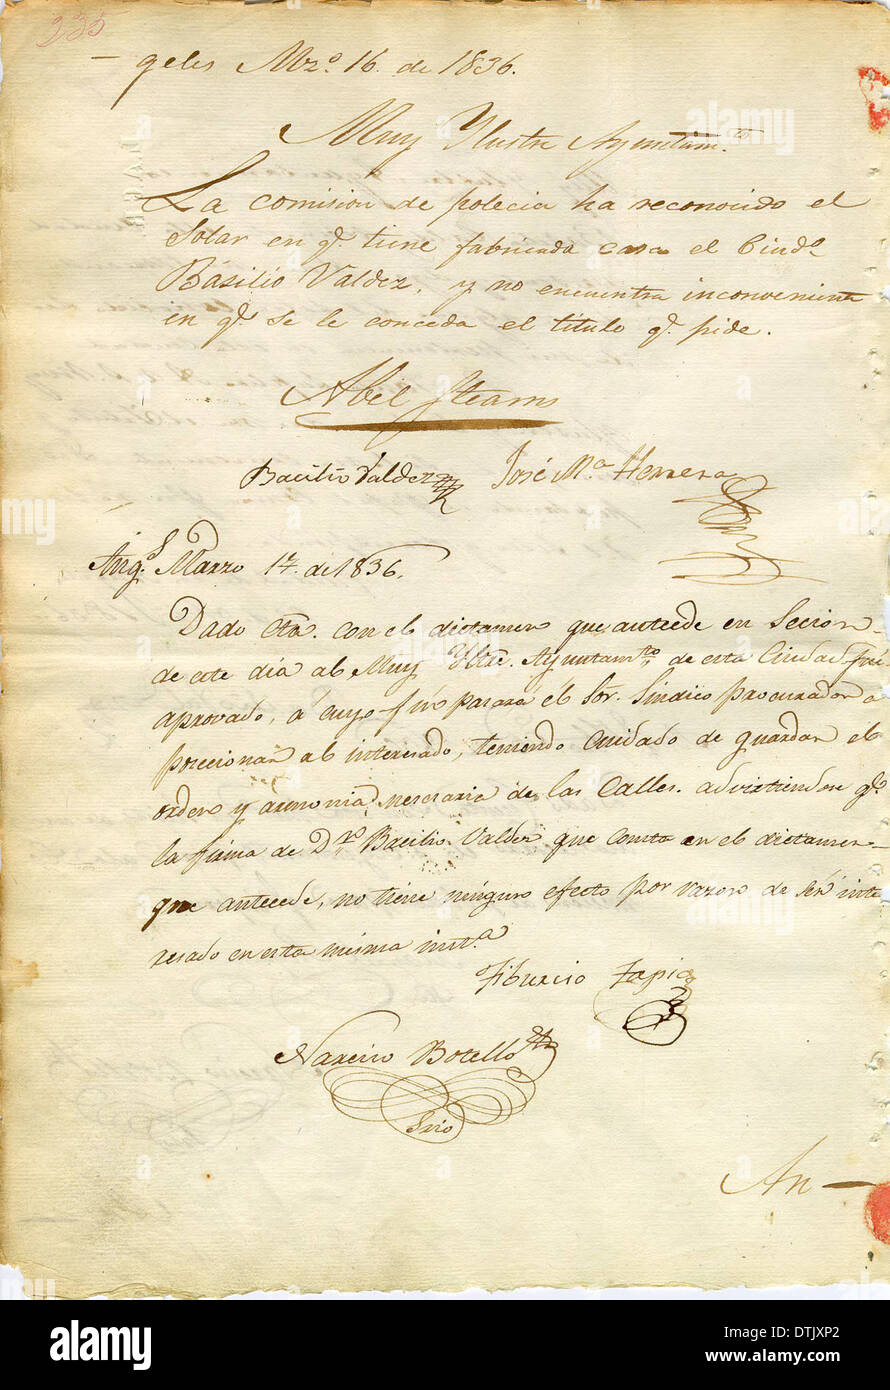 235
— geles Mzo. 16. de 1836.
Muy Ylustre Ayuntamto.
La comision de polecia ha reconocido el
Solar en q. tiene fabricada casa el Ciudo.
Básilio Valdez, y no encuentra inconveniente
en q. se le conceda el título q. pide.
Abel Stearns
Bacilio Valdez José Ma. Herrera
Angs. Marzo 17. de 1836.
Dado cta. con el dictamen que antecede en Secion
de este dia al Muy Yltre. Ayuntamto. de esta Ciudad fué
aprovado, á cuyo fin pasará el Sor. Sindico procurador a
poscecionar al interesado, teniendo cuidado de guardar el
orden y armonia necesaria de las Calles. advirtiendose q.
la firma de Dn. Bacilio Valdez que consta en el dictamen
que antecede, no tiene ninguno efecto por razon de ser inte
resado en esta misma insta.
Tiburcio Tapia
Narciso Botello
Srio
An—
alamy
DTJXP2
www.alamy.com